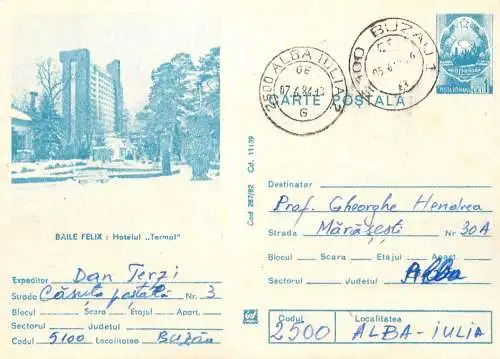 2500 ALBA IULIA 2
07.6.84.12
G
BUZAU 1
CARTE POSTALA
BĂILE FELIX : Hotelul „Termal"
Cod 287/82 Cd. 11139
Expeditor Dan Terzi
Strada Căsuța poștală Nr. 3
Blocul Scara Etajul Apart.
Sectorul Județul
Codul 5100 Localitatea BUZĂU
Destinatar
Prof. Gheorghe Hendrea
Strada Mărășești Nr 30A
Blocul Scara Etajul Apart.
Sectorul Județul Alba
Codul Localitatea
2500 ALBA-IULIA